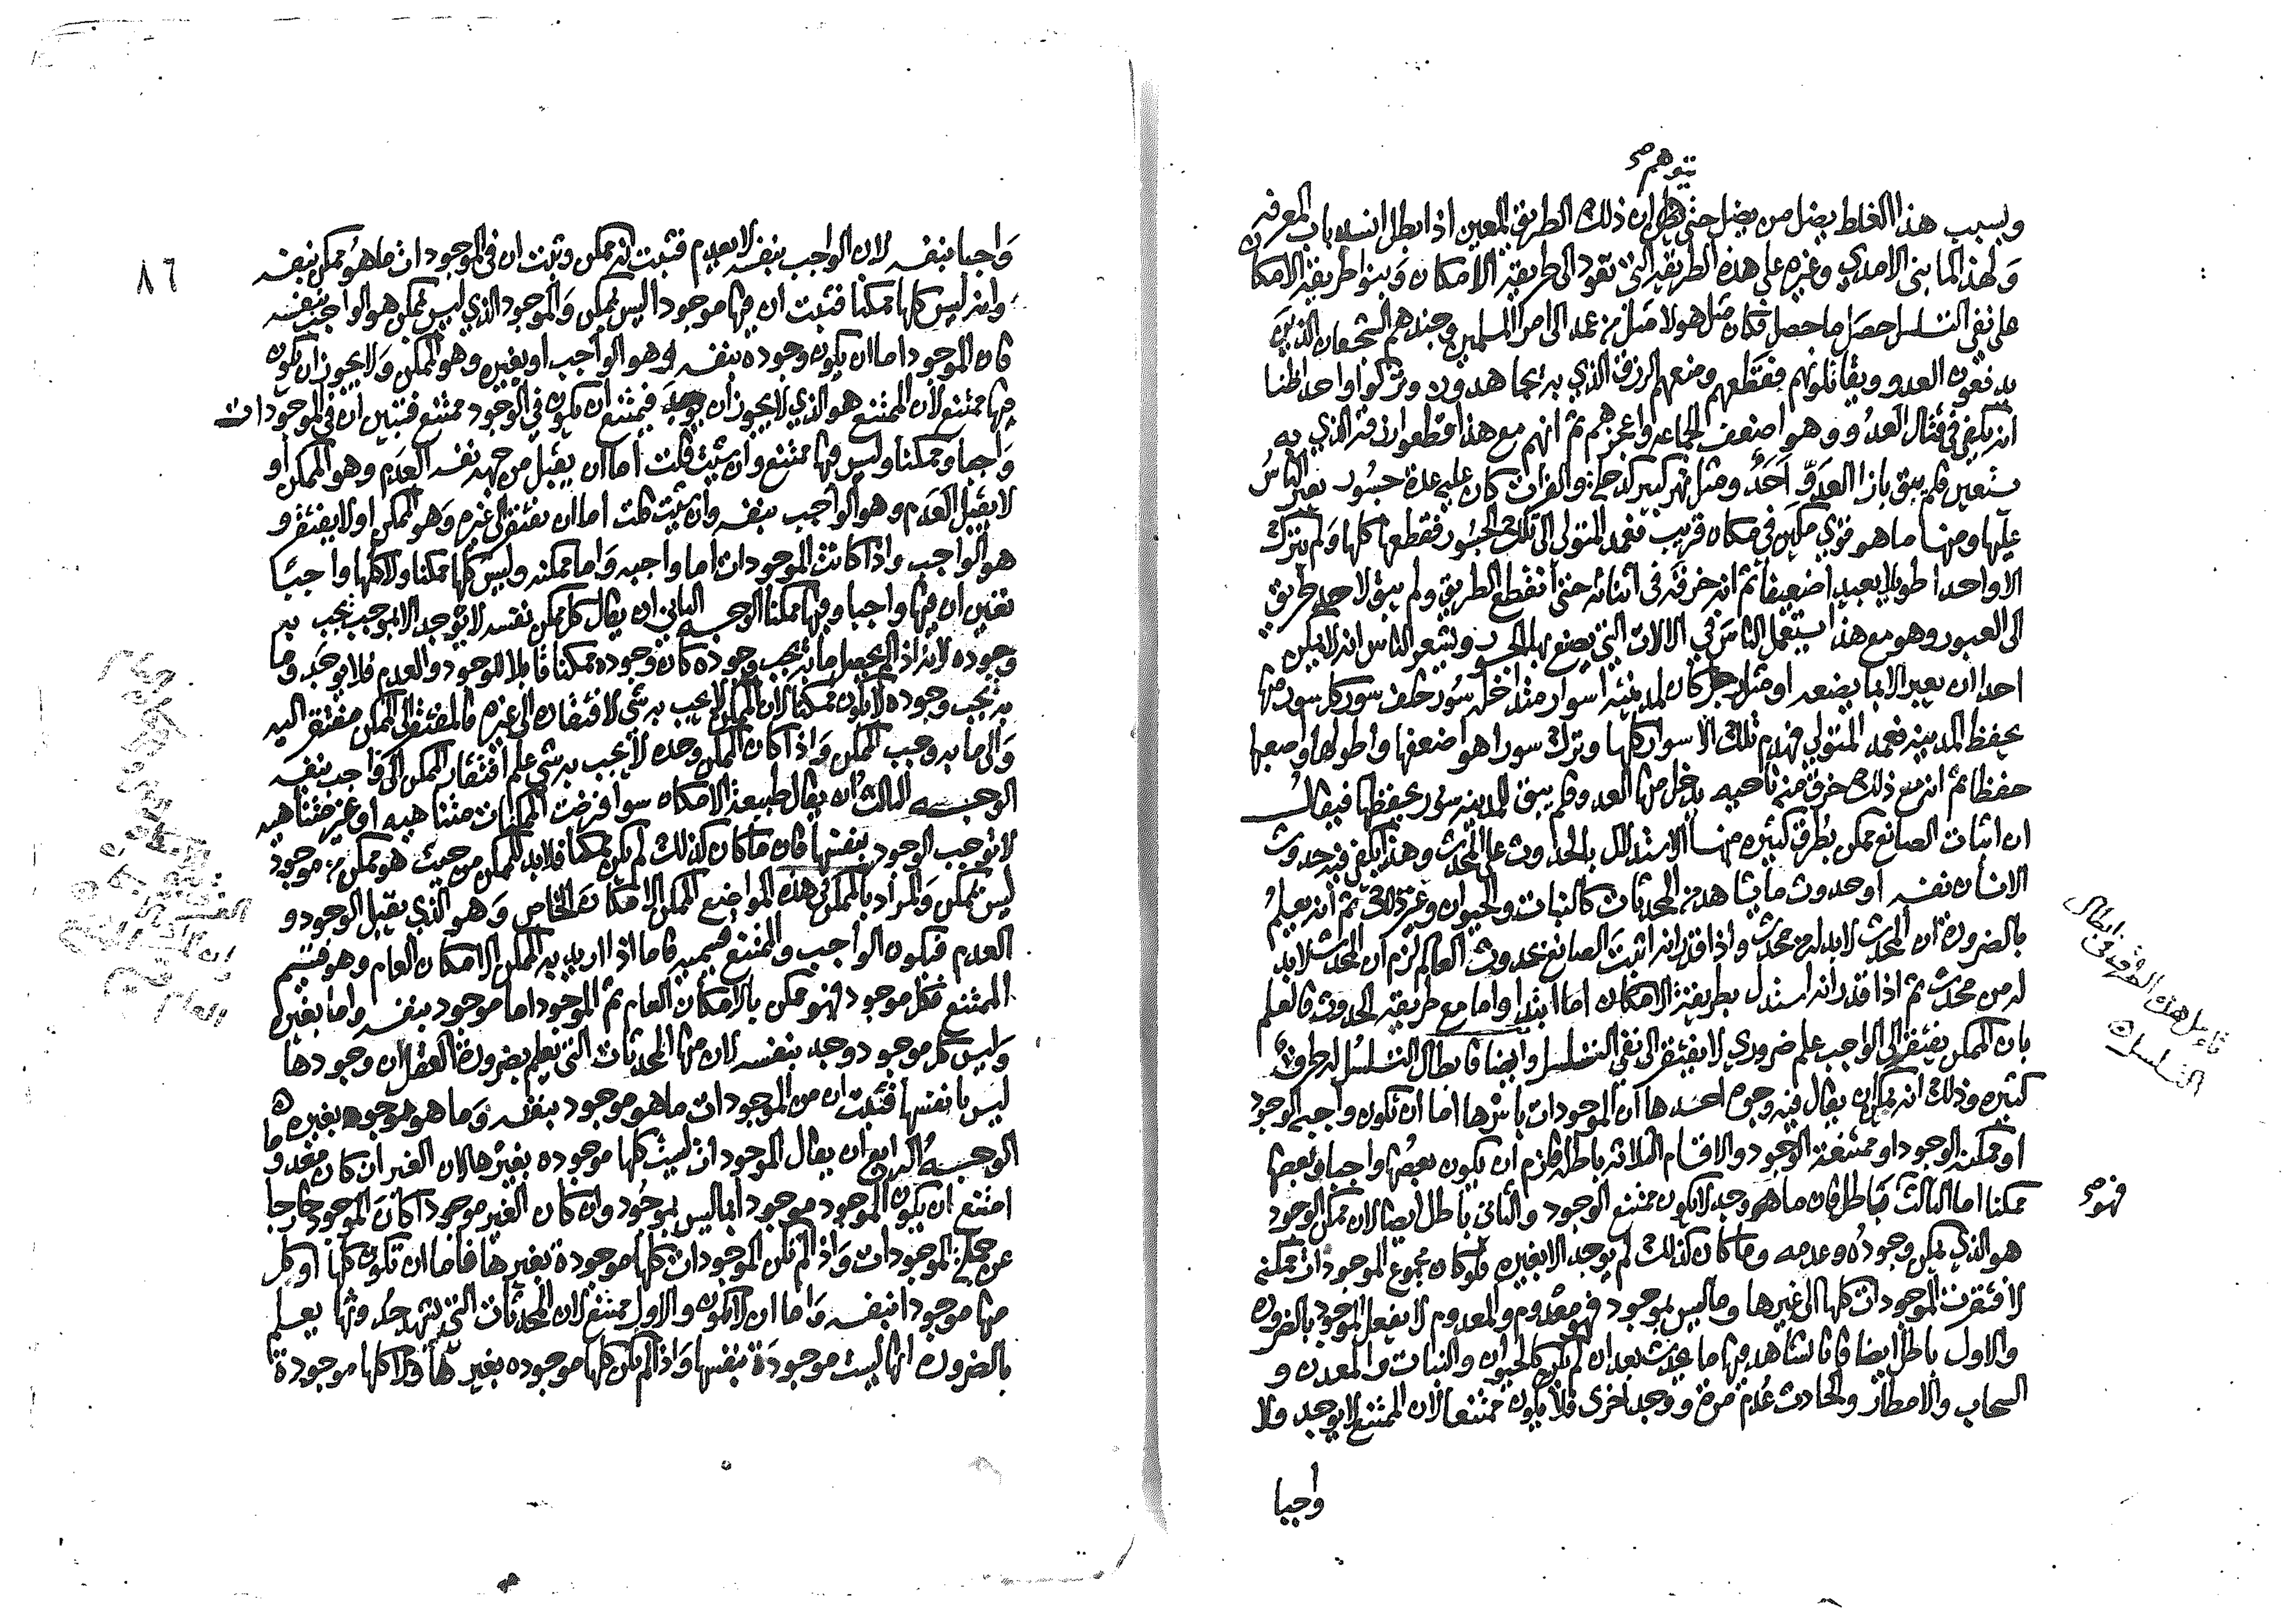 يتوهم صح
وبسبب هذا الغلط يضل من يضل حتى يظن ان ذلك الطريق المعين اذا بطل انسد باب المعرفه
ولهذا لما بنى الامدي وغيره على هذه الطريقه التي تقود الى طريقة الامكان وبنوا طريقة الامكان
على نفي التسلسل حصل ما حصل فكان مثل هولا مثل من عمد الى امرا المسلمين وجندهم الشجعان الذين
يدفعون العدو ويقاتلونهم فقطعهم ومنعهم الرزق الذي به يجاهدون وتركوا واحدا ظنا
انه يكفي في قتال العدو وهو اضعف الجماعه واعجزهم ثم انهم مع هذا قطعوا رزقه الذي به
يستعين فلم يبق بازا العدو احد ومثل نهر كبير كدجلة والفرات كان عليه عدة جسور يعبر الناس
عليها ومنها ما هو قوي مكين في مكان قريب فعمد المتولي الى تلك الجسور فقطعها كلها ولم يترك
الا واحدا طويلا بعيدا ضعيفا ثم انه خرقه في اثنائه حتى انقطع الطريق ولم يبق لاحد طريق
الى العبور وهو مع هذا يستعمل الناس في الالات التي يصنع بها الجسور ويشعر الناس انه لا يمكن
احدا ان يعبر الا بما يصنعه او مثل رجل كان لمدينته اسوار متداخله سور خلف سور كل سور منها
يحفظ المدينه فعمد المتولي فهدم تلك الاسوار كلها وترك سورا هو اضعفها واطولها واصعبها
حفظا ثم انه مع ذلك خرق منه ناحيه يدخل منها العدو فلم يبق للمدينه سور يحفظها فيقال
ان اثبات الصانع ممكن بطرق كثيره منها الاستدلال بالحدوث على المحدث وهذا يكفي فيه حدوث
الانسان نفسه او حدوث ما يشاهد من المحدثات كالنبات والحيوان وغير ذلك ثم انه يعلم
بالضرورة ان المحدث لابد له من محدث واذا قدر انه اثبت الصانع بحدوث العالم لزم ان المحدث لابد
له من محدث ثم اذا قدر انه استدل بطريقة الامكان اما ابتدا واما مع طريقة الحدوث فالعلم
بان الممكن يفتقر الى الواجب علم ضروري لا يفتقر الى نفي التسلسل وايضا فابطال التسلسل له طرق
تامل هذه الطرق في ابطال
التسلسل
كثيره وذلك انه يمكن ان يقال فيه وجوه احدها ان الموجودات باسرها اما ان تكون واجبه الوجود
او ممكنه الوجود او ممتنعة الوجود والاقسام الثلاثه باطله فلزم ان يكون بعضها واجبا وبعضها
ممكنا اما الثالث فباطل فان ما وجد لا يكون ممتنع الوجود والثاني باطل ايضا لان ممكن الوجود
فهو صح
هو الذي يمكن وجوده وعدمه وما كان كذلك لم يوجد الا بغيره فلو كان مجموع الموجودات ممكنه
لافتقرت الموجودات كلها الى غيرها وما ليس بموجود فهو معدوم والمعدوم لا يفعل الموجود بالضروره
والاول باطل ايضا فانا نشاهد فيها ما يحدث بعد ان لم يكن كالحيوان والنبات والمعدن و
السحاب والامطار والحادث عدم مرة ووجد اخرى فلا يكون ممتنعا لان الممتنع لا يوجد ولا
واجبا
٨٦
واجبا بنفسه لان الواجب بنفسه لا يعدم فثبت انه ممكن وثبت ان في الموجودات ما هو ممكن بنفسه
وانه ليس كلها ممكنا فثبت ان فيها موجودا ليس بممكن والموجود الذي ليس بممكن هو الواجب بنفسه
فان الموجود اما ان يكون وجوده بنفسه وهو الواجب او بغيره وهو الممكن ولا يجوز ان يكون
فيها ممتنع لان الممتنع هو الذي لا يجوز ان يوجد فيمتنع ان يكون في الوجود ممتنع فتبين ان في الموجودات
واجبا وممكنا وليس فيها ممتنع وان شيت قلت اما ان يقبل من جهه نفسه العدم وهو الممكن او
لا يقبل العدم وهو الواجب بنفسه وان شيت قلت اما ان يفتقر الى غيره وهو الممكن او لا يفتقر و
هو الواجب واذا كانت الموجودات اما واجبه واما ممكنه وليس كلها ممكنا ولا كلها واجبا
تعين ان فيها واجبا وفيها ممكنا الوجه الثاني ان يقال كل ممكن بنفسه لا يوجد الا بموجب يجب به
وجوده لانه اذا لم يحصل ما به يجب وجوده كان وجوده ممكنا قابلا للوجود والعدم فلا يوجد وما
به يجب وجوده لا يكون ممكنا لان الممكن لا يجب به شي لافتقاره الى غيره فالمفتقر الى الممكن مفتقر اليه
والى ما به وجب الممكن واذا كان الممكن وحده لا يجب به شي علم افتقار الممكن الى واجب بنفسه
الوجه الثالث ان يقال طبيعة الامكان سوا فرضت الممكنات متناهيه او غير متناهيه
لا توجب الوجود بنفسها فان ما كان كذلك لم يكن ممكنا فلابد للممكن من حيث هو ممكن من موجود
ليس بممكن والمراد بالممكن في هذه المواضع الممكن الامكان الخاص وهو الذي يقبل الوجود و
العدم فيكون الواجب والممتنع قسيميه فاما اذا اريد به الممكن الامكان العام وهو قسيم
الممتنع فكل موجود فهو ممكن بالامكان العام ثم الموجود اما موجود بنفسه واما بغيره
وليس كل موجود وجد بنفسه لان من المحدثات التي نعلم بضرورة العقل ان وجودها
ليس بانفسها فثبت ان من الموجودات ما هو موجود بنفسه وما هو موجود بغيره
الوجه الرابع ان يقال الموجودات ليست كلها موجوده بغيرها لان الغير ان كان معدوما
امتنع ان يكون الموجود موجودا بما ليس بموجود وان كان الغير موجودا كان الموجود خارجا
عن جملة الموجودات واذا لم تكن الموجودات كلها موجودة بغيرها فاما ان تكون كلها او كل
منها موجودا بنفسه واما ان لا يكون والاول ممتنع لان المحدثات التي نشهد حدوثها يعلم
بالضروره انها ليست موجودة بنفسها واذا لم يكن كلها موجوده بغيرها ولا كلها موجودة